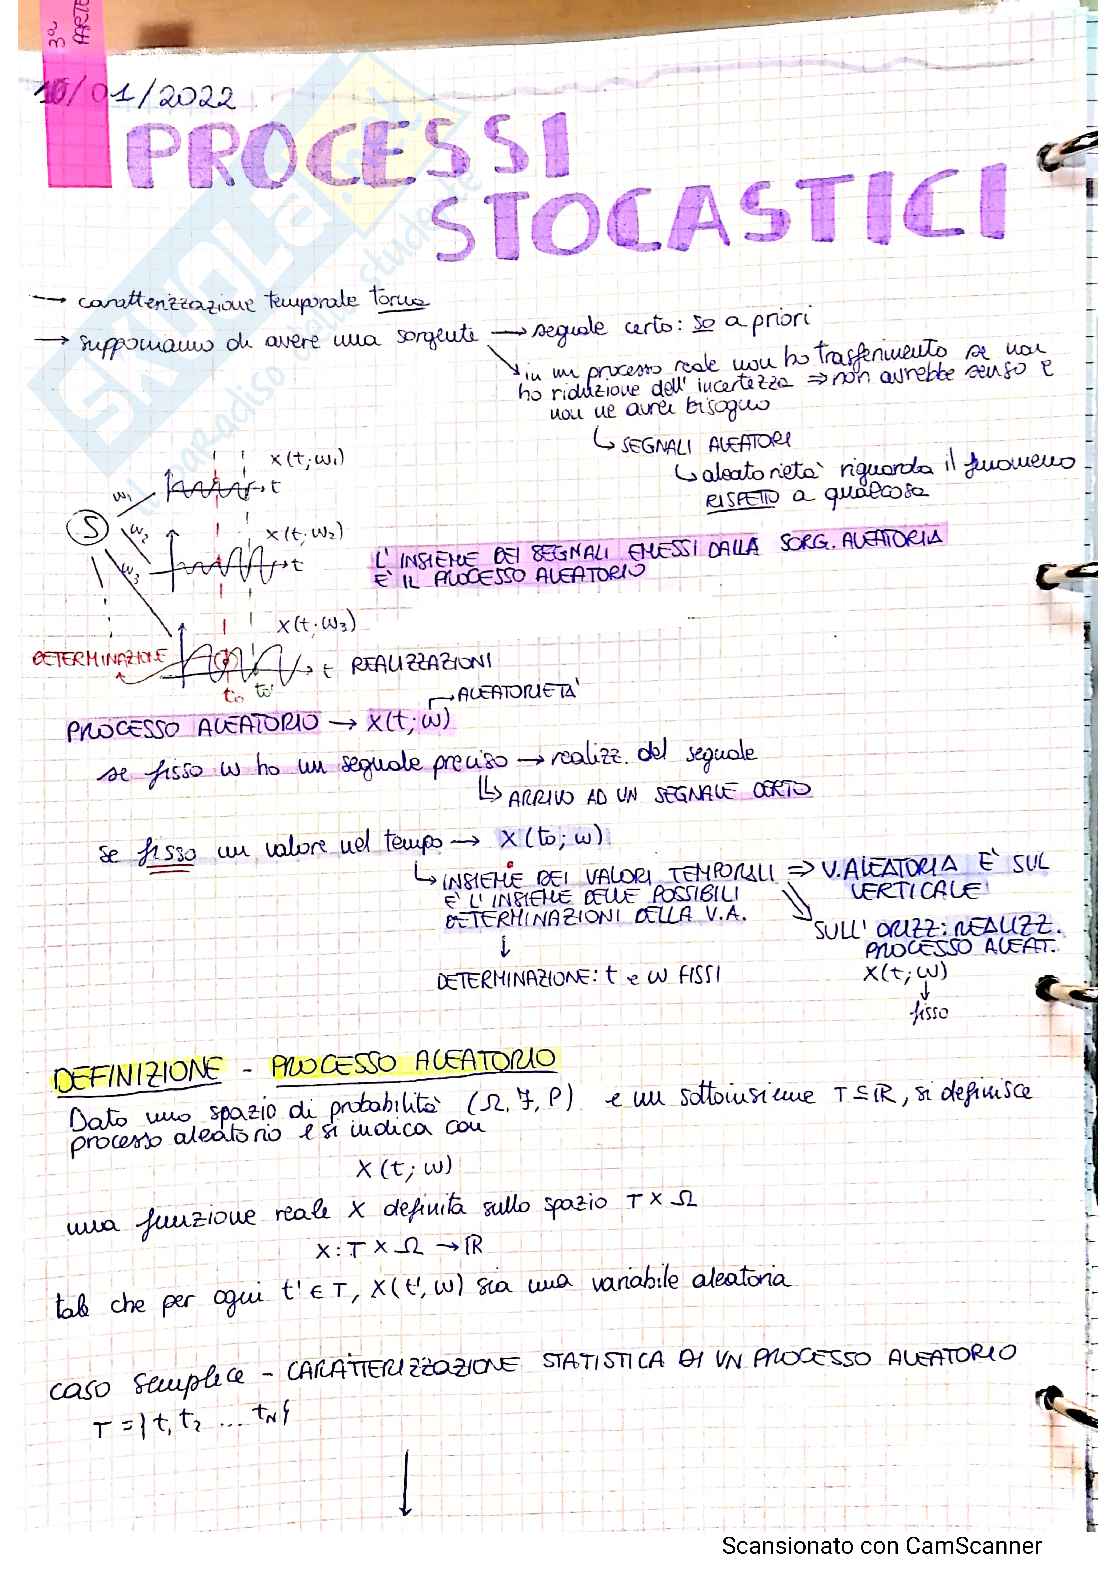 3ª PARTE
10/01/2022
PROCESSI
STOCASTICI
→ caratterizzazione temporale torna
→ supponiamo di avere una sorgente → segnale certo: so a priori
in un processo reale non ho trasferimento se non
ho riduzione dell'incertezza ⇒ non avrebbe senso e
non ne avrei bisogno
↳ SEGNALI ALEATORI
↳ aleatorietà riguarda il fenomeno
RISPETTO a qualcosa
x(t;ω₁)
ω₁
t
S
x(t;ω₂)
ω₂
t
ω₃
L'INSIEME DEI SEGNALI EMESSI DALLA SORG. ALEATORIA
È IL PROCESSO ALEATORIO
x(t;ω₃)
DETERMINAZIONE
t REALIZZAZIONI
t₀ t₀'
ALEATORIETÀ
PROCESSO ALEATORIO → x(t;ω)
se fisso ω ho un segnale preciso → realizz. del segnale
↳ ARRIVO AD UN SEGNALE CERTO
se fisso un valore nel tempo → x(t₀;ω)
↳ INSIEME DEI VALORI TEMPORALI ⇒ V.ALEATORIA È SUL
È L'INSIEME DELLE POSSIBILI VERTICALE
DETERMINAZIONI DELLA V.A.
SULL'ORIZZ: REALIZZ.
PROCESSO ALEAT.
↓
DETERMINAZIONE: t e ω FISSI
x(t;ω)
↓
fisso
DEFINIZIONE - PROCESSO ALEATORIO
Dato uno spazio di probabilità (Ω, F, P) e un sottoinsieme T ⊆ ℝ, si definisce
processo aleatorio e si indica con
x(t;ω)
una funzione reale x definita sullo spazio T x Ω
x: T x Ω → ℝ
tale che per ogni t' ∈ T, x(t',ω) sia una variabile aleatoria
caso semplice - CARATTERIZZAZIONE STATISTICA DI UN PROCESSO ALEATORIO
T = {t₁ t₂ ... t_N}
↓
Scansionato con CamScanner